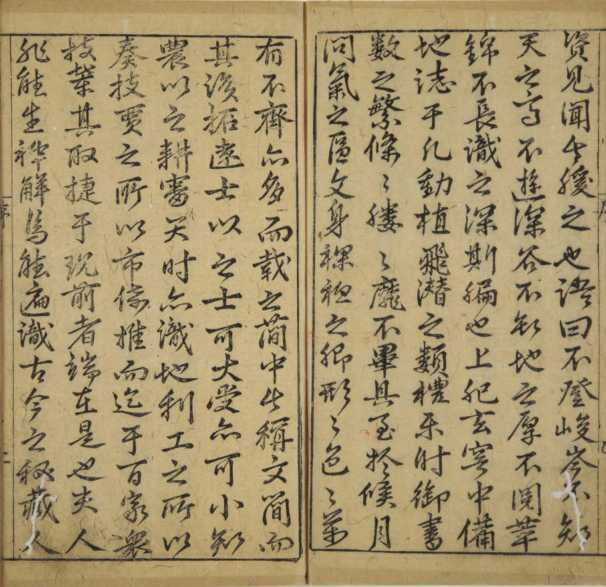 資見聞者緩之也語曰不登峻岑不知
天之高不進深谷不知地之厚不閱華
錦不長識之深斯編也上紀玄穹中備
地誌于凡動植飛潛之類禮樂时御書
數之繁條々縷々靡不畢具至於候月
問氣之區文身裸袒之鄉形々色々萬
有不齊亦多而載之簡中者稱文簡而
其該拓遠士以之士可大受亦可小知
農以之耕審天时亦識地利工之所以
奏技賈之所以市傢推而迄于百家眾
技業其取捷于現前者端在是也夫人
非能生神解焉能遍識古今之秘藏人
序